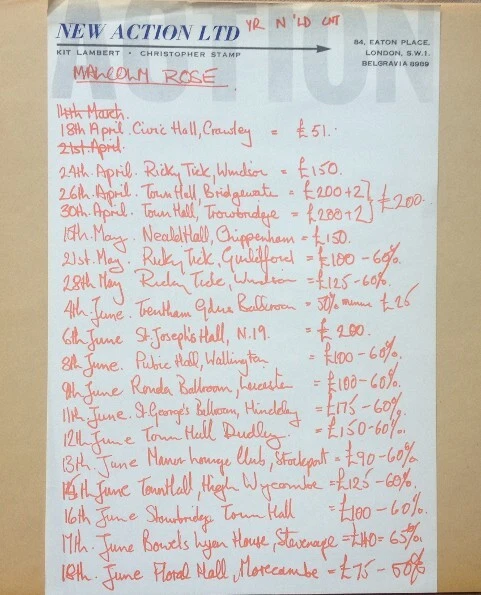 ACTION
NEW ACTION LTD YR N 'LD CNT
KIT LAMBERT • CHRISTOPHER STAMP
84, EATON PLACE,
LONDON, S.W.1.
BELGRAVIA 8989
MALCOLM ROSE
14th March.
18th April. Civic Hall, Crawley = £51.
21st April.
24th. April. Ricky Tick, Windsor = £150.
26th. April. Town Hall, Bridgewater = £200+2 } £200.
30th April. Town Hall, Trowbridge = £200+2
15th May. Neald Hall, Chippenham = £150.
21st. May. Ricky Tick, Guildford = £100 – 60%.
28th May Ricky Tick, Windsor = £125 – 60%.
4th. June. Trentham Gdns Ballroom = 50% minus £25
6th June St. Joseph's Hall, N.19. = £200.
8th June. Public Hall, Wallington = £100 – 60%.
9th June Ronda Ballroom, Leicester = £100 – 60%.
11th June. St. George's Ballroom, Hinckley = £175 – 60%.
12th June Town Hall Dudley. = £150 – 60%.
13th. June Manor Lounge Club, Stockport = £90 – 60%
15th June Town Hall, High Wycombe = £125 – 60%.
16th June Stourbridge Town Hall = £100 – 60%.
17th. June Bowes Lyon House, Stevenage = £110 = 65%.
18th. June Floral Hall, Morecambe = £75 – 60%